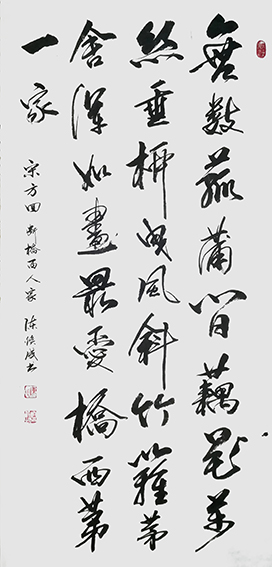 無數菰蒲間藕花萬
絲垂柳曳風斜竹籬茅
舍深如畫最愛橋西第
一家
宋方回 橋西人家 陳成书